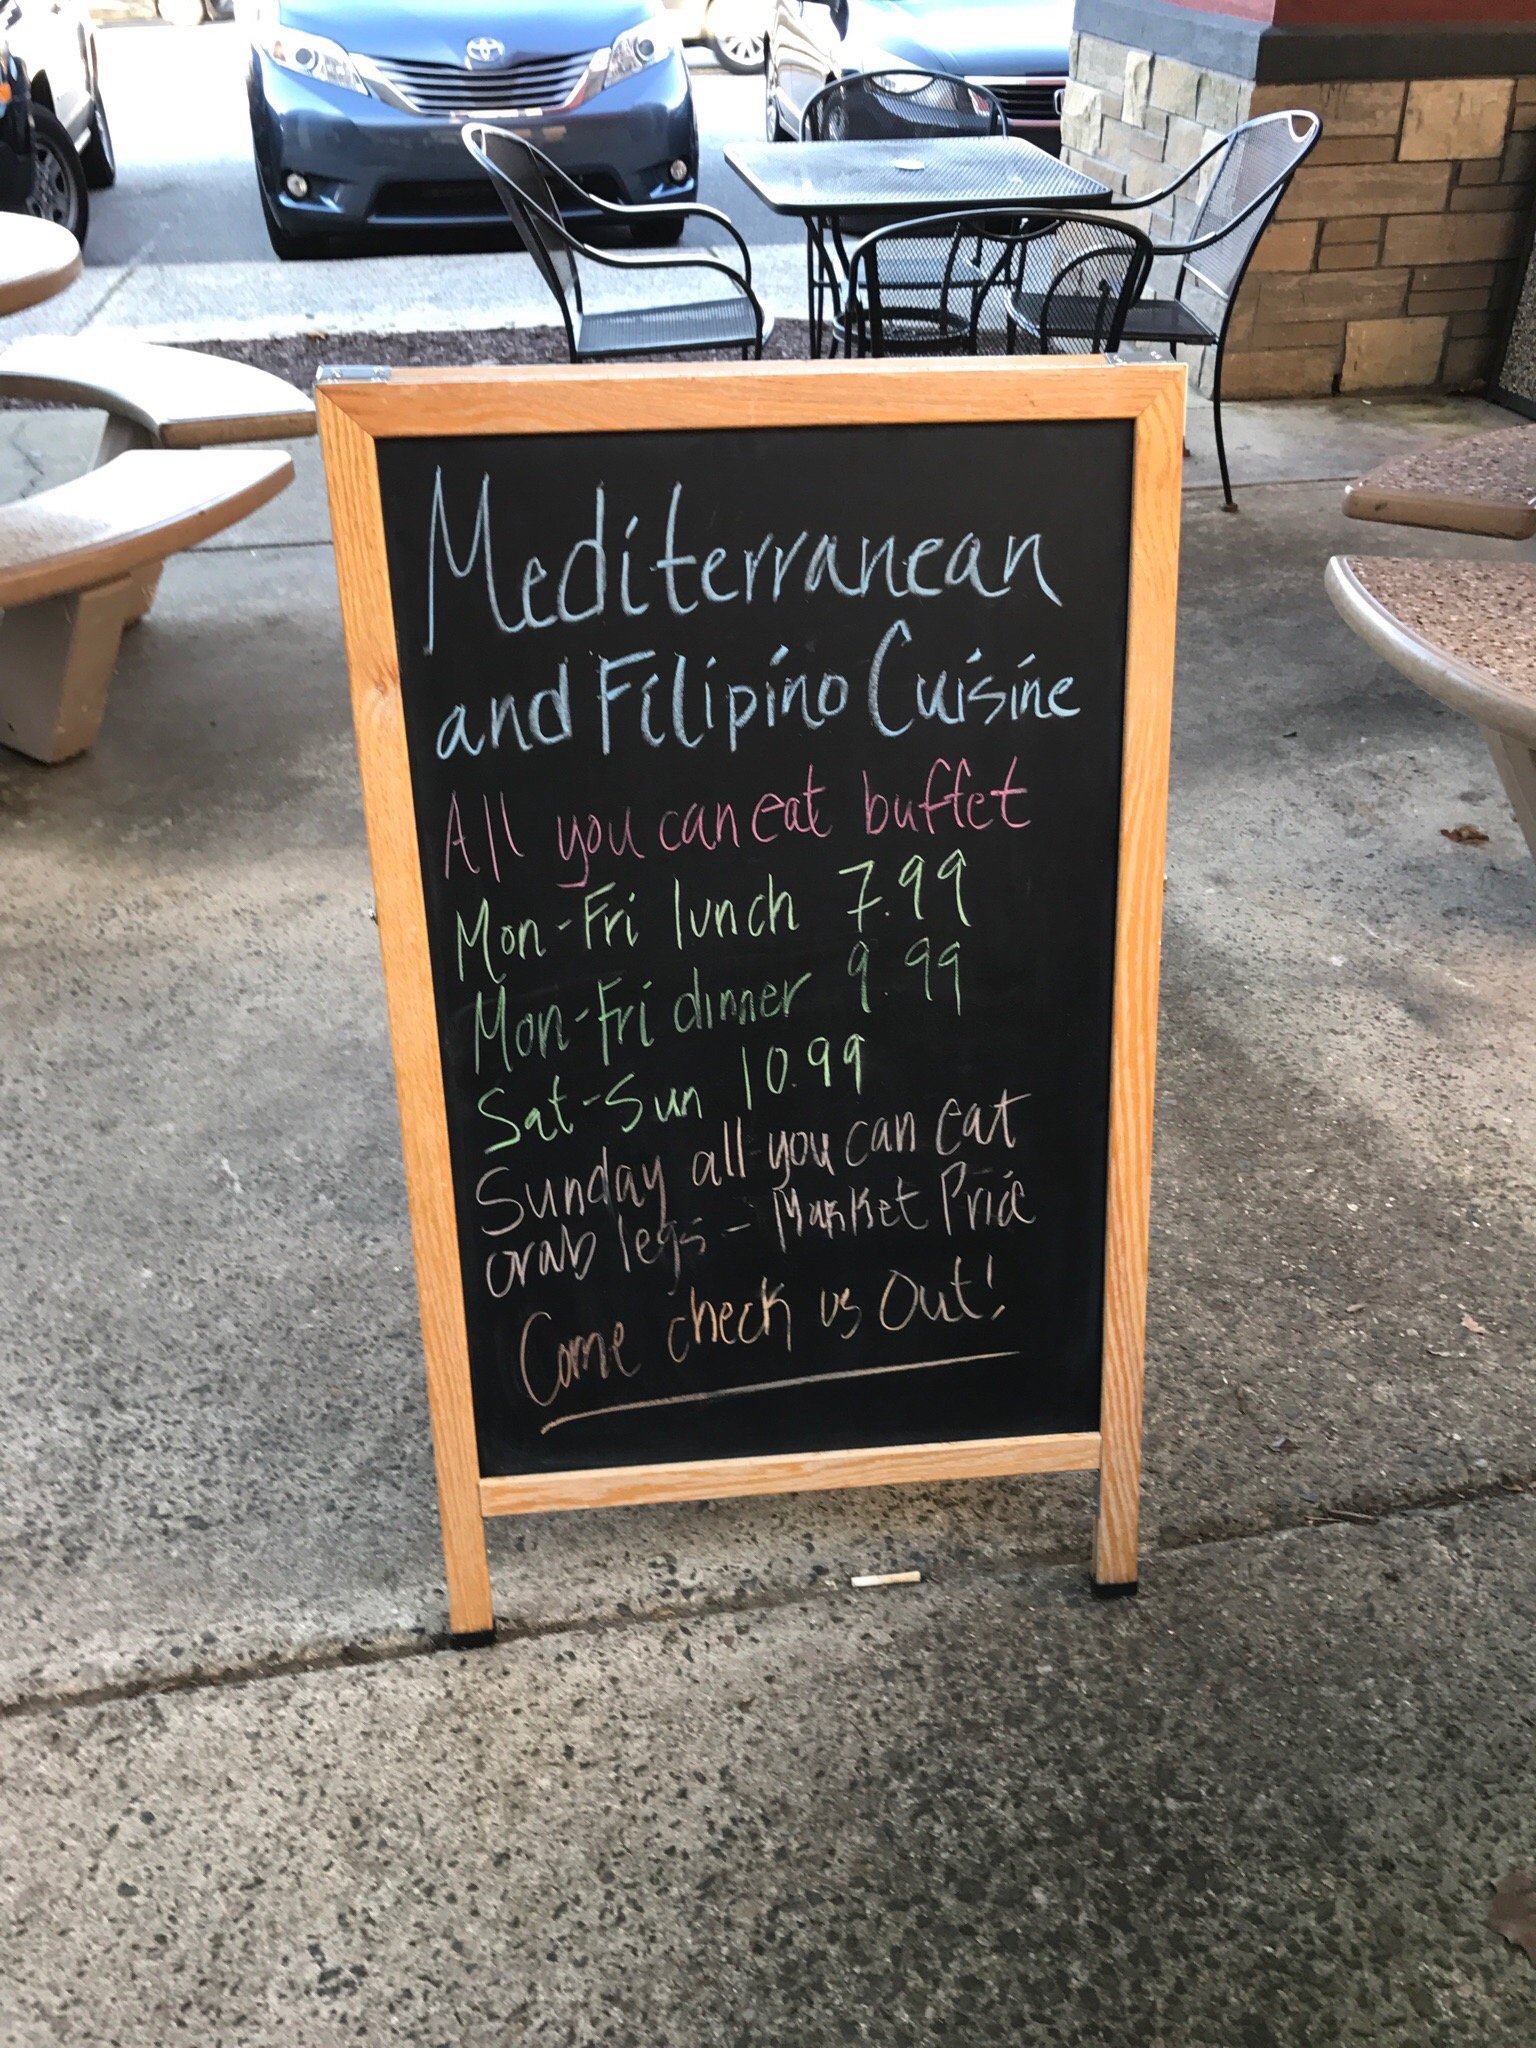 Mediterranean
and Filipino Cuisine
All you can eat buffet
Mon-Fri lunch 7.99
Mon-Fri dinner 9.99
Sat-Sun 10.99
Sunday all you can eat
crab legs - Market Price
Come check us out!